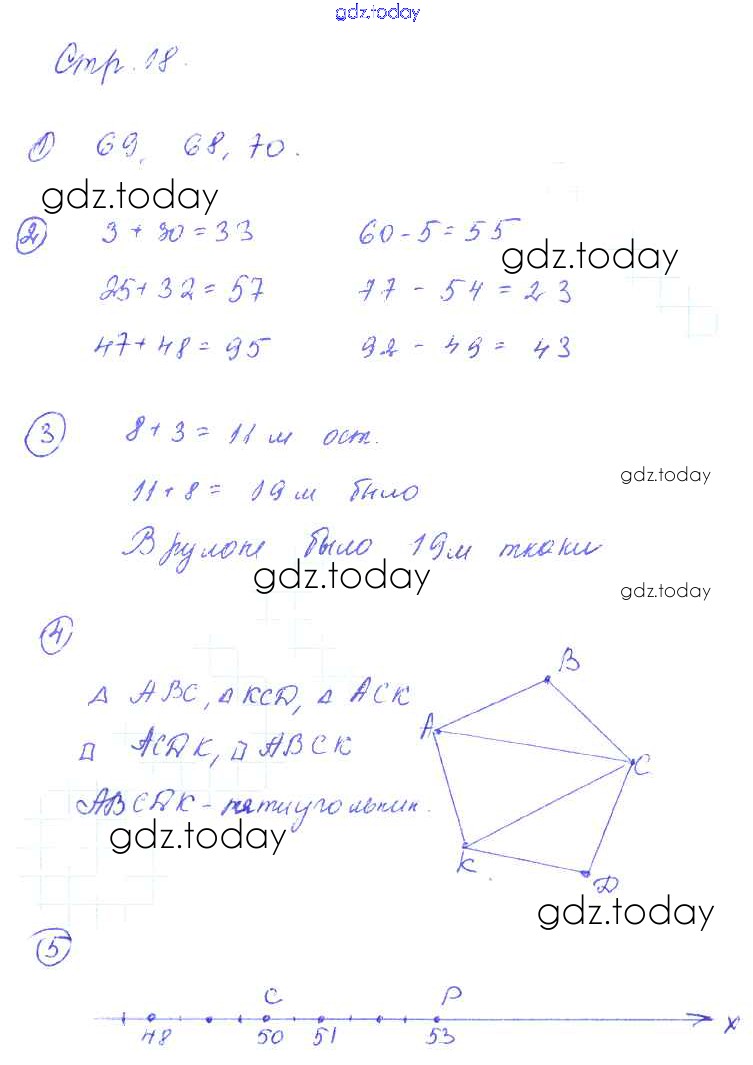 gdz.today
Стр. 18.
1) 69, 68, 70.
gdz.today
2) 3 + 30 = 33 60 - 5 = 55
gdz.today
25 + 32 = 57 77 - 54 = 23
47 + 48 = 95 92 - 49 = 43
3) 8 + 3 = 11 м ост.
gdz.today
11 + 8 = 19 м было
В рулоне было 19 м ткани
gdz.today
gdz.today
4)
B
△ ABC, △ KCD, △ ACK
A
□ ACDK, □ ABCK
C
ABCDK - пятиугольник.
gdz.today
K
D
gdz.today
5)
C P
48 50 51 53 x